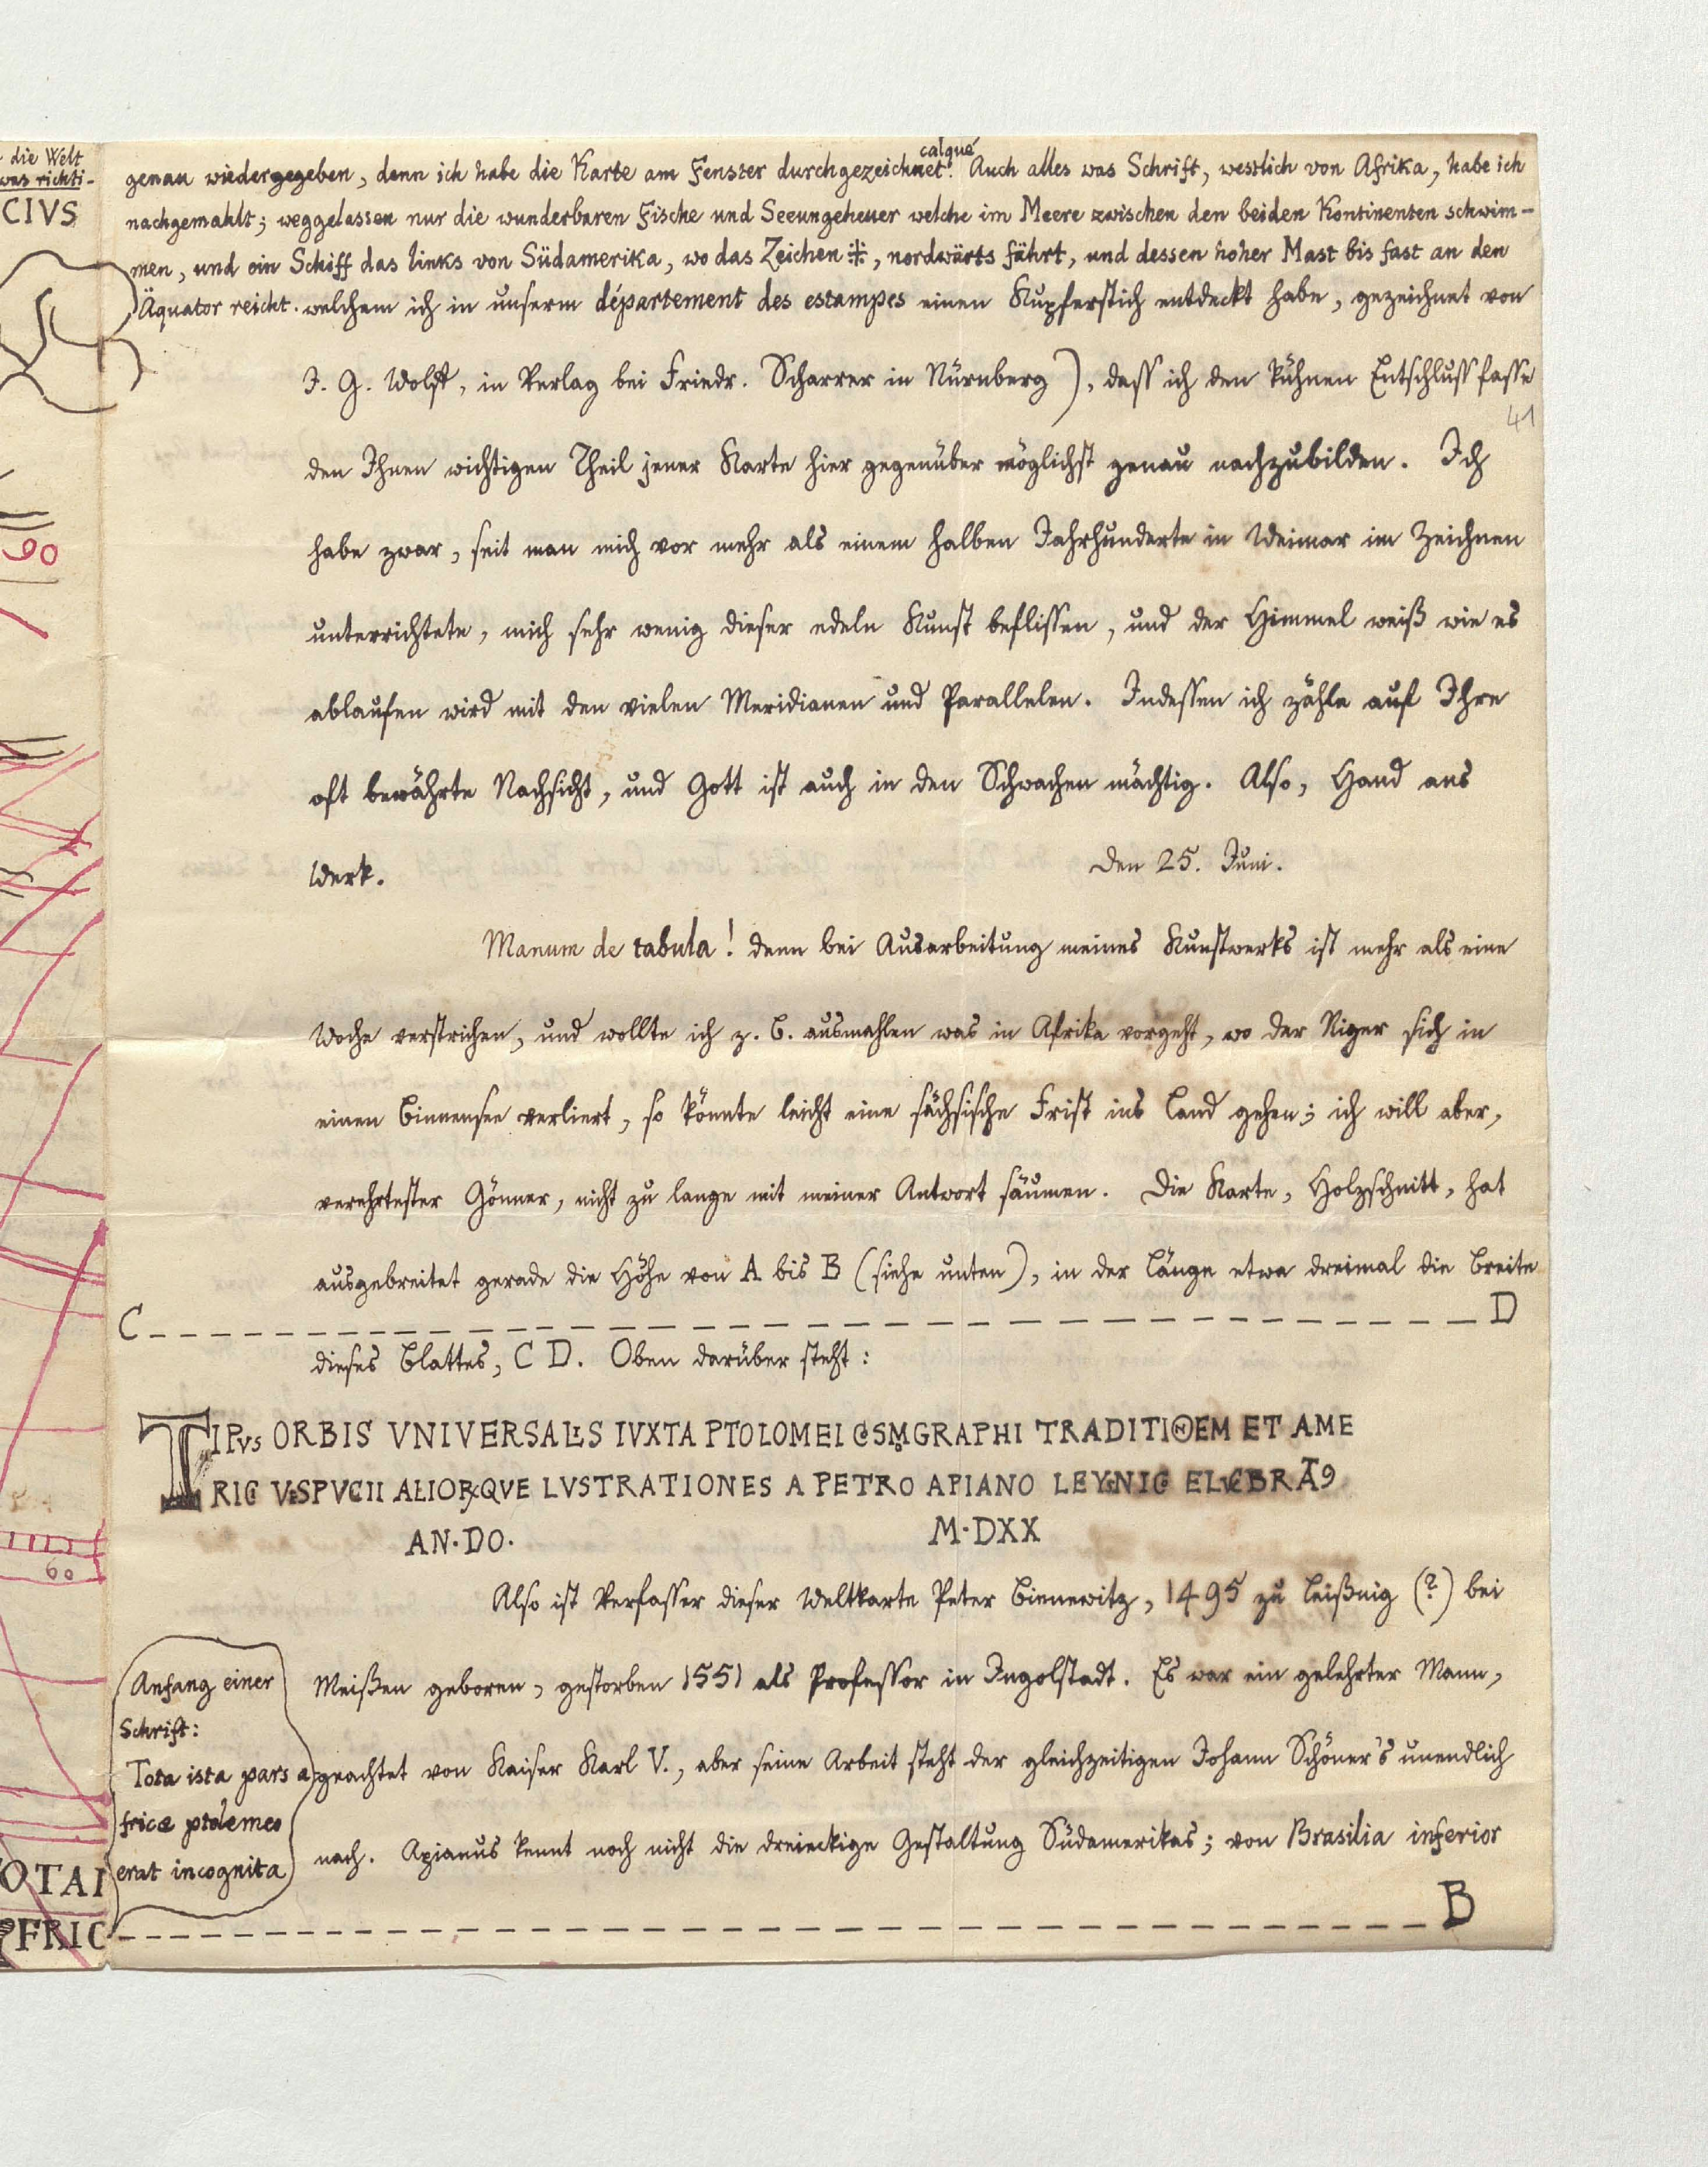 die Welt
was richti-
CIVS
90
60
OTAI
FRIC
calqué
genau wiedergegeben, denn ich habe die Karte am Fenster durchgezeichnet. Auch alles was Schrift, westlich von Afrika, habe ich
nachgemahlt; weggelassen nur die wunderbaren Fische und Seeungeheuer welche im Meere zwischen den beiden Kontinenten schwim-
men, und ein Schiff das links von Südamerika, wo das Zeichen ⁜, nordwärts fährt, und dessen hoher Mast bis fast an den
Äquator reicht. welchem ich in unserm département des estampes einen Kupferstich entdeckt habe, gezeichnet von
J. G. Wolff, in Verlag bei Friedr. Scharrer in Nürnberg), dass ich den kühnen Entschluss fasse
41
den Ihnen wichtigen Theil jener Karte hier gegenüber möglichst genau nachzubilden. Ich
habe zwar, seit man mich vor mehr als einem halben Jahrhunderte in Weimar im Zeichnen
unterrichtete, mich sehr wenig dieser edeln Kunst beflissen, und der Himmel weiß wie es
ablaufen wird mit den vielen Meridianen und Parallelen. Indessen ich zähle auf Ihre
oft bewährte Nachsicht, und Gott ist auch in den Schwachen mächtig. Also, Hand ans
Werk. Den 25. Juni.
Manum de tabula! denn bei Ausarbeitung meines Kunstwerks ist mehr als eine
Woche verstrichen, und wollte ich z. B. ausmahlen was in Afrika vorgeht, wo der Niger sich in
einen Binnensee verliert, so könnte leicht eine sächsische Frist ins Land gehen; ich will aber,
verehrtester Gönner, nicht zu lange mit meiner Antwort säumen. Die Karte, Holzschnitt, hat
ausgebreitet gerade die Höhe von A bis B (siehe unten), in der Länge etwa dreimal die Breite
C D
dieses Blattes, C D. Oben darüber steht:
TIPVS ORBIS VNIVERSALIS IVXTA PTOLOMEI COSMOGRAPHI TRADITIONEM ET AME
RIC VESPVCII ALIORQVE LVSTRATIONES A PETRO APIANO LEYSNIC ELVCBRAT9
AN·DO. M·DXX
Also ist Verfasser dieser Weltkarte Peter Bienewitz, 1495 zu Leißnig (?) bei
Meißen geboren, gestorben 1551 als Professor in Ingolstadt. Es war ein gelehrter Mann,
geachtet von Kaiser Karl V., aber seine Arbeit steht der gleichzeitigen Johann Schöner's unendlich
nach. Apianus kennt noch nicht die dreieckige Gestaltung Südamerikas; von Brasilia inferior
Anfang einer
Schrift:
Tota ista pars a
frice ptolemeo
erat incognita
B